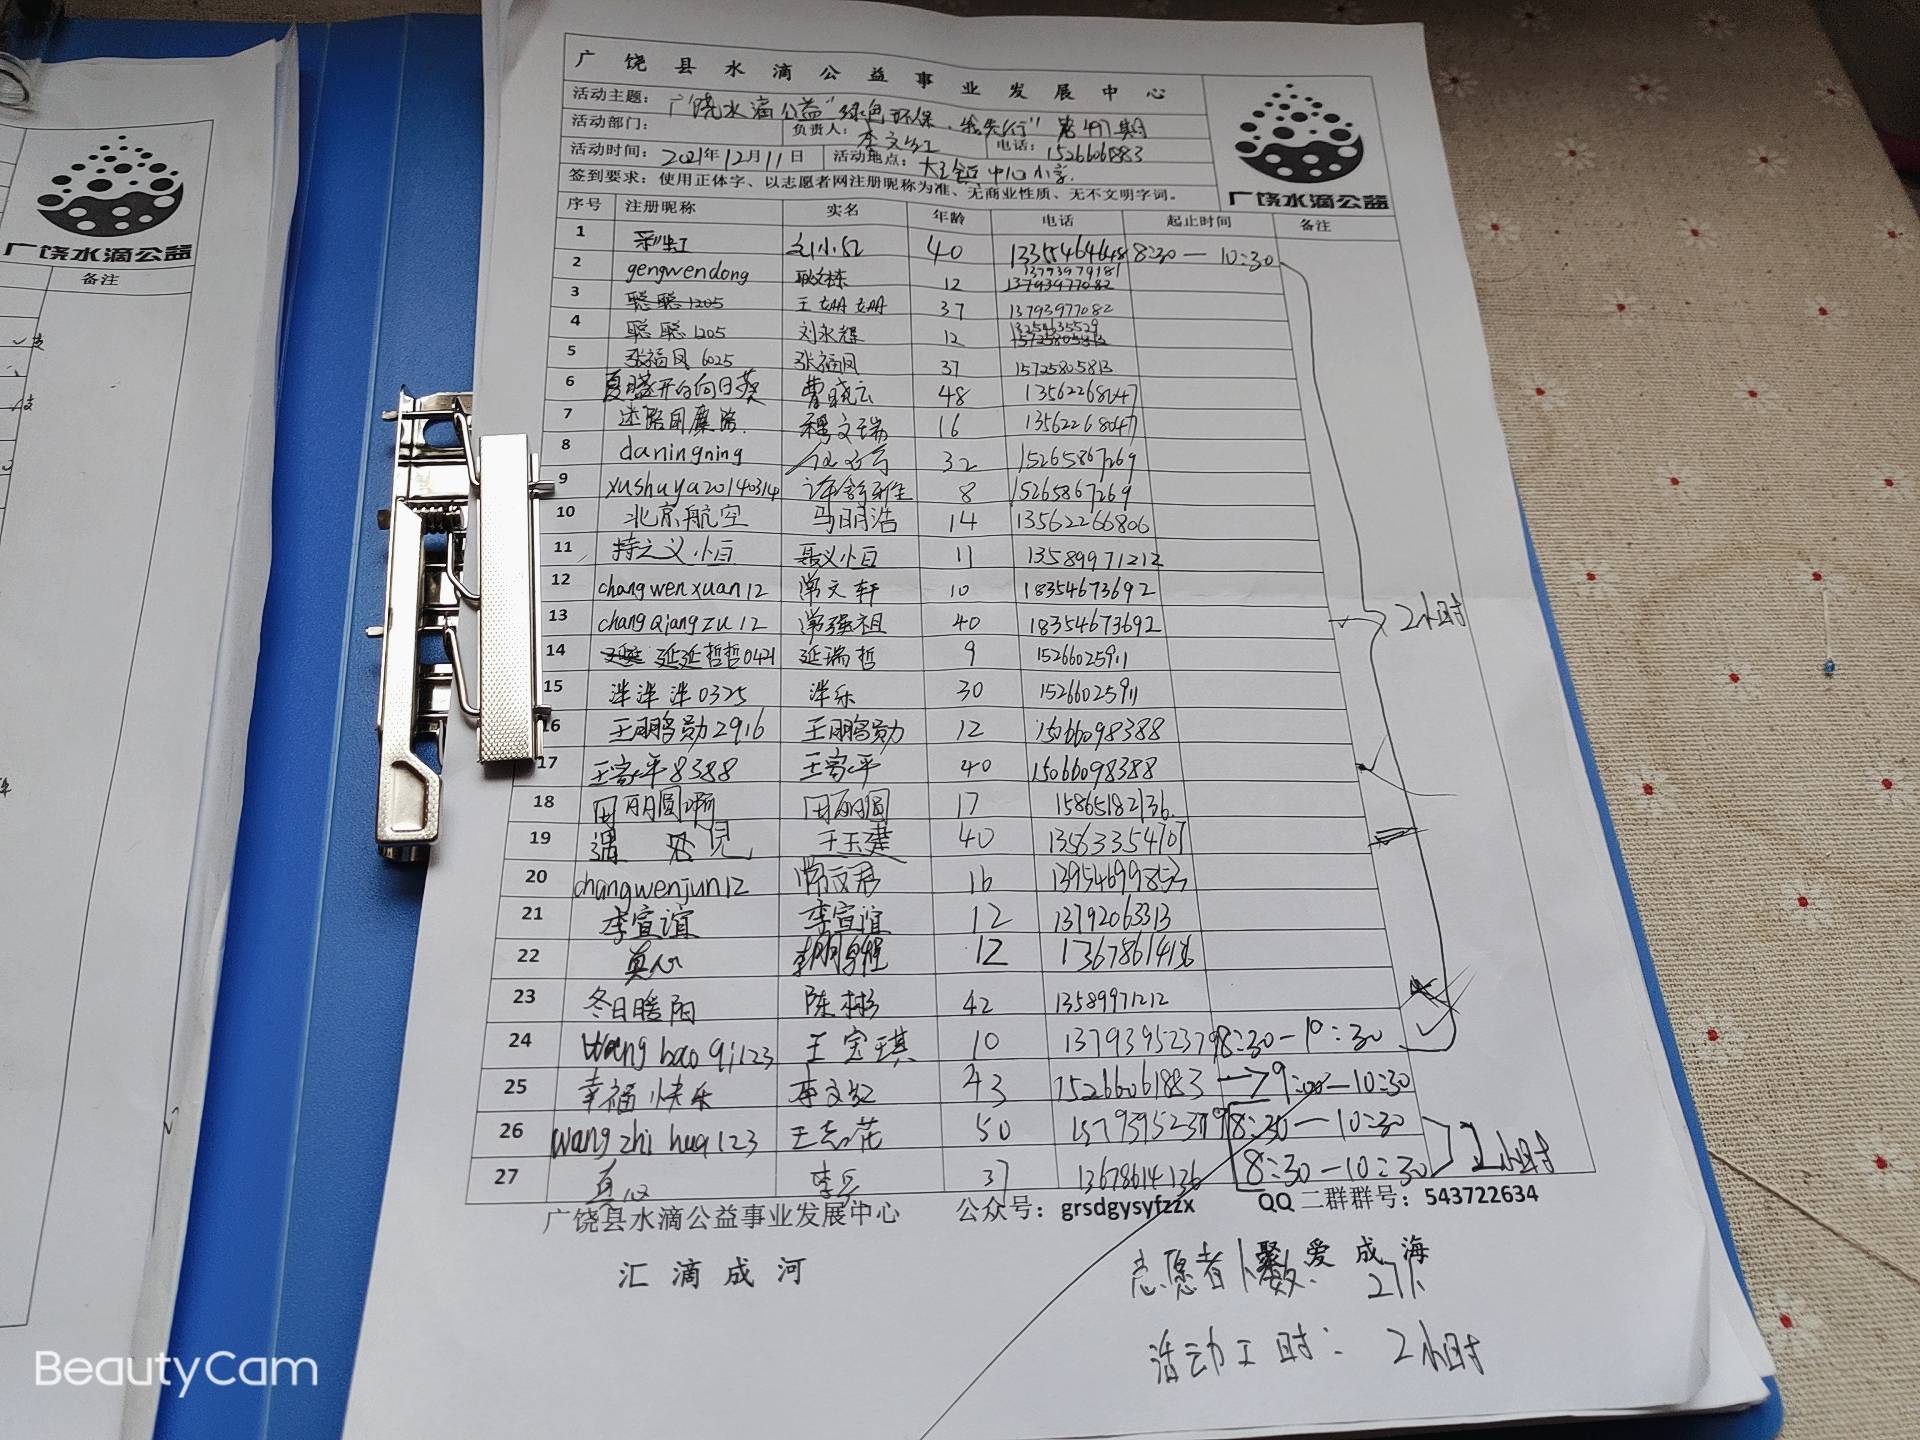 广饶县水滴公益事业发展中心
活动主题： 广饶水滴公益"绿色环保·我先行" 第497期
活动部门： 负责人： 李文红 电话： 15266061883
活动时间： 2021年12月11日 活动地点： 大王镇中心小学.
签到要求：使用正体字、以志愿者网注册昵称为准、无商业性质、无不文明字词。
广饶水滴公益
序号 注册昵称 实名 年龄 电话 起止时间 备注
1 彩虹 40 8:30—10:30
2 gengwendong 耿文栋 12 13793979181
3 聪聪1205 王姗姗 37 13793977082
4 聪聪1205 刘永耀 12
5 张福凤6025 张福凤 37 15725805813
6 夏日盛开的向日葵 曹晓云 48 13562268047
7 迷路同麋鹿. 穆文瑞 16 13562268047
8 daningning 32 15265867269
9 xushuya20140314 许舒雅 8 15265867269
10 北京航空 马明浩 14 13562266806
11 持之义小百 聂义小百 11 13589971212
12 changwenxuan12 常文轩 10 18354673692
13 changqiangzu12 常强祖 40 18354673692 2小时
14 延延哲哲0421 延瑞哲 9 15266025911
15 洋洋洋0325 洋乐 30 15266025911
16 王鹏勋2916 王鹏勋 12 15066098388
17 王家平8388 王家平 40 15066098388
18 田丽圆啊 田丽圆 17 15865182136.
19 遇 见 王玉建 40 13563354707
20 changwenjun12 常文君 16 13954699853
21 李宣谊 李宣谊 12 13792063313
22 真心 12 13678614136
23 冬日暖阳 陈彬 42 13589971212
24 wangbaoqi123 王宝琪 10 13793952379 8:30—10:30
25 幸福快乐 李文红 43 15266061883 →9:00—10:30
26 wangzhihua123 王志花 50 8:30—10:30
27 真心 李兵 37 13678614136 8:30—10:30 2小时
广饶县水滴公益事业发展中心 公众号：grsdgysyfzzx QQ二群群号：543722634
汇滴成河 聚爱成海
志愿者人数： 27人
活动工时： 2小时
广饶水滴公益
备注
BeautyCam